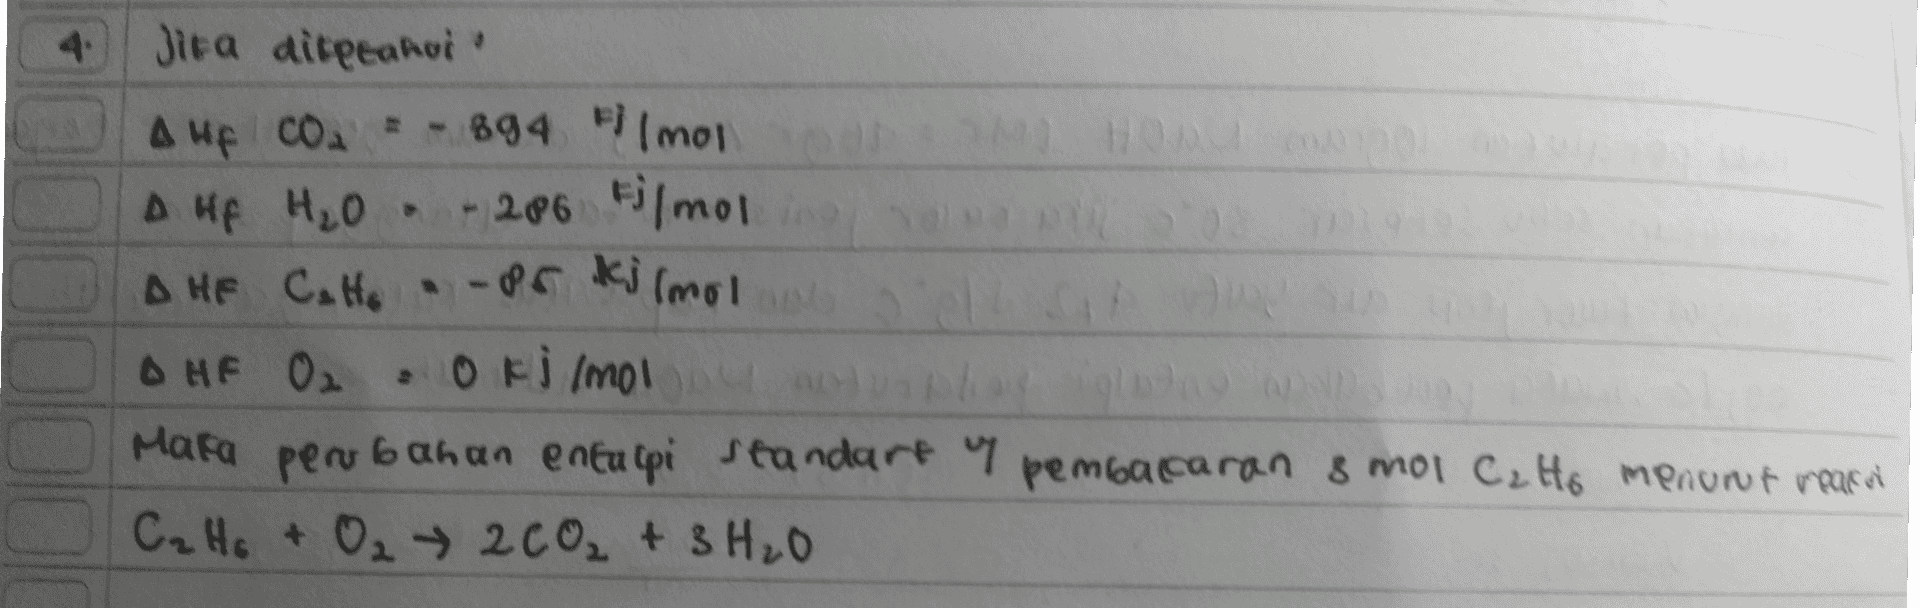 4. Jika diketahui :
Δ Hf CO₂ = - 394 kj/mol
Δ Hf H₂O = - 286 kj/mol
Δ HF C₂H₆ = - 85 kj/mol
Δ HF O₂ = 0 kj/mol
Maka perubahan entalpi standart y pembakaran 3 mol C₂H₆ menurut reaksi
C₂H₆ + O₂ → 2CO₂ + 3H₂O